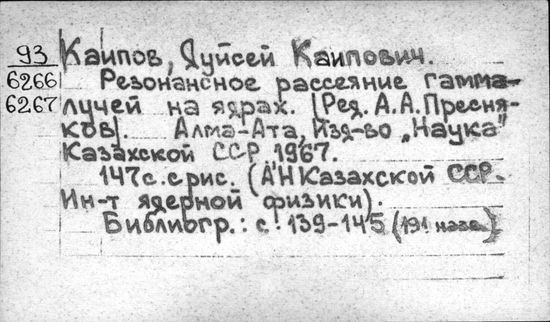 93 Каипов, Дуйсей Каипович.
6266 Резонансное рассеяние гамма-
6267 лучей на ядрах. [Ред. А.А.Пресня-
ков]. Алма-Ата, Изд-во „Наука"
Казахской ССР 1967.
147с. с рис. (АН Казахской ССР.
Ин-т ядерной физики).
Библиогр.: с. 139-145 (191 назв.)